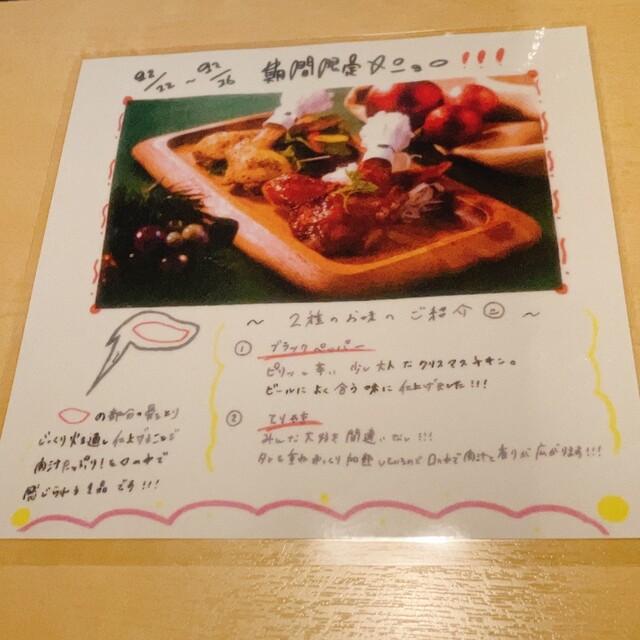 12/22 ~ 12/26 期間限定メニュー!!!
~ 2種のお味のご紹介 ~
① ブラックペッパー
ピリッと辛い 少し大人なクリスマスチキン。
ビールによく合う味に仕上げました!!!
② てりやき
みんな大好き間違いなし!!!
タレを含めじっくり加熱しているので口の中で肉汁と香りが広がります!!!
の部分の骨をとり
じっくり火を通し仕上げることで
肉汁たっぷり!と口の中で
感じられる1品です!!!